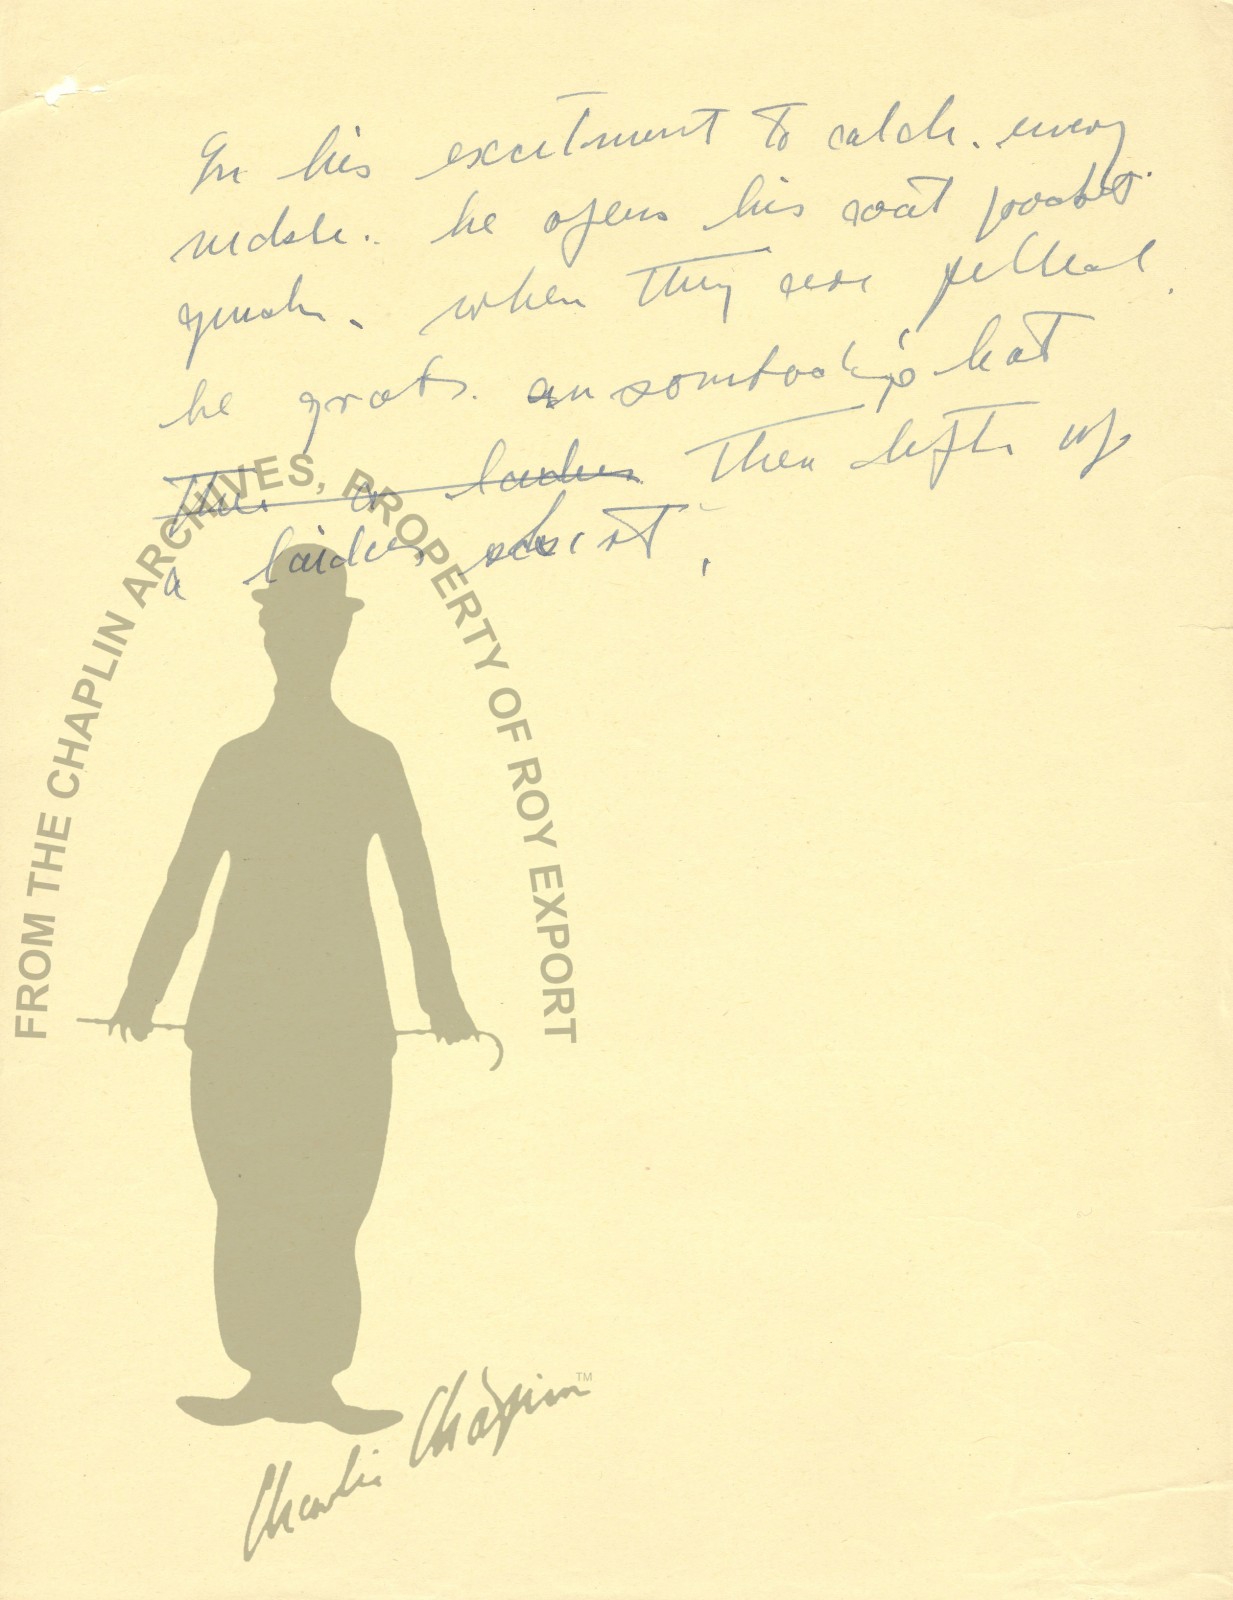 In his excitment to catch. every
nickle. he opens his coat pocket
when they are filled.
he grabs. sombody's hat
Then a ladies Then lifts up
a laidies skirt.
FROM THE CHAPLIN ARCHIVES, PROPERTY OF ROY EXPORT
Charlie Chaplin™